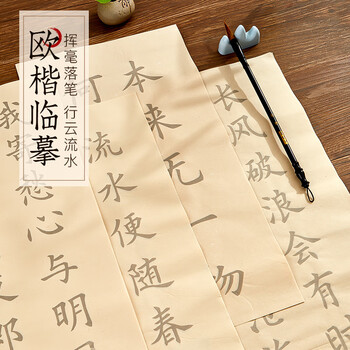 欧楷临摹
挥毫落笔 行云流水
长风破浪会有时
本来无一
流水便随春
我寄愁心与明
郎